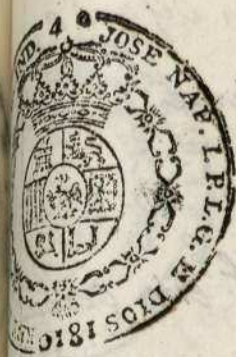 ND. 4 JOSE NAP. I. P. L. G. E DIOS 1810